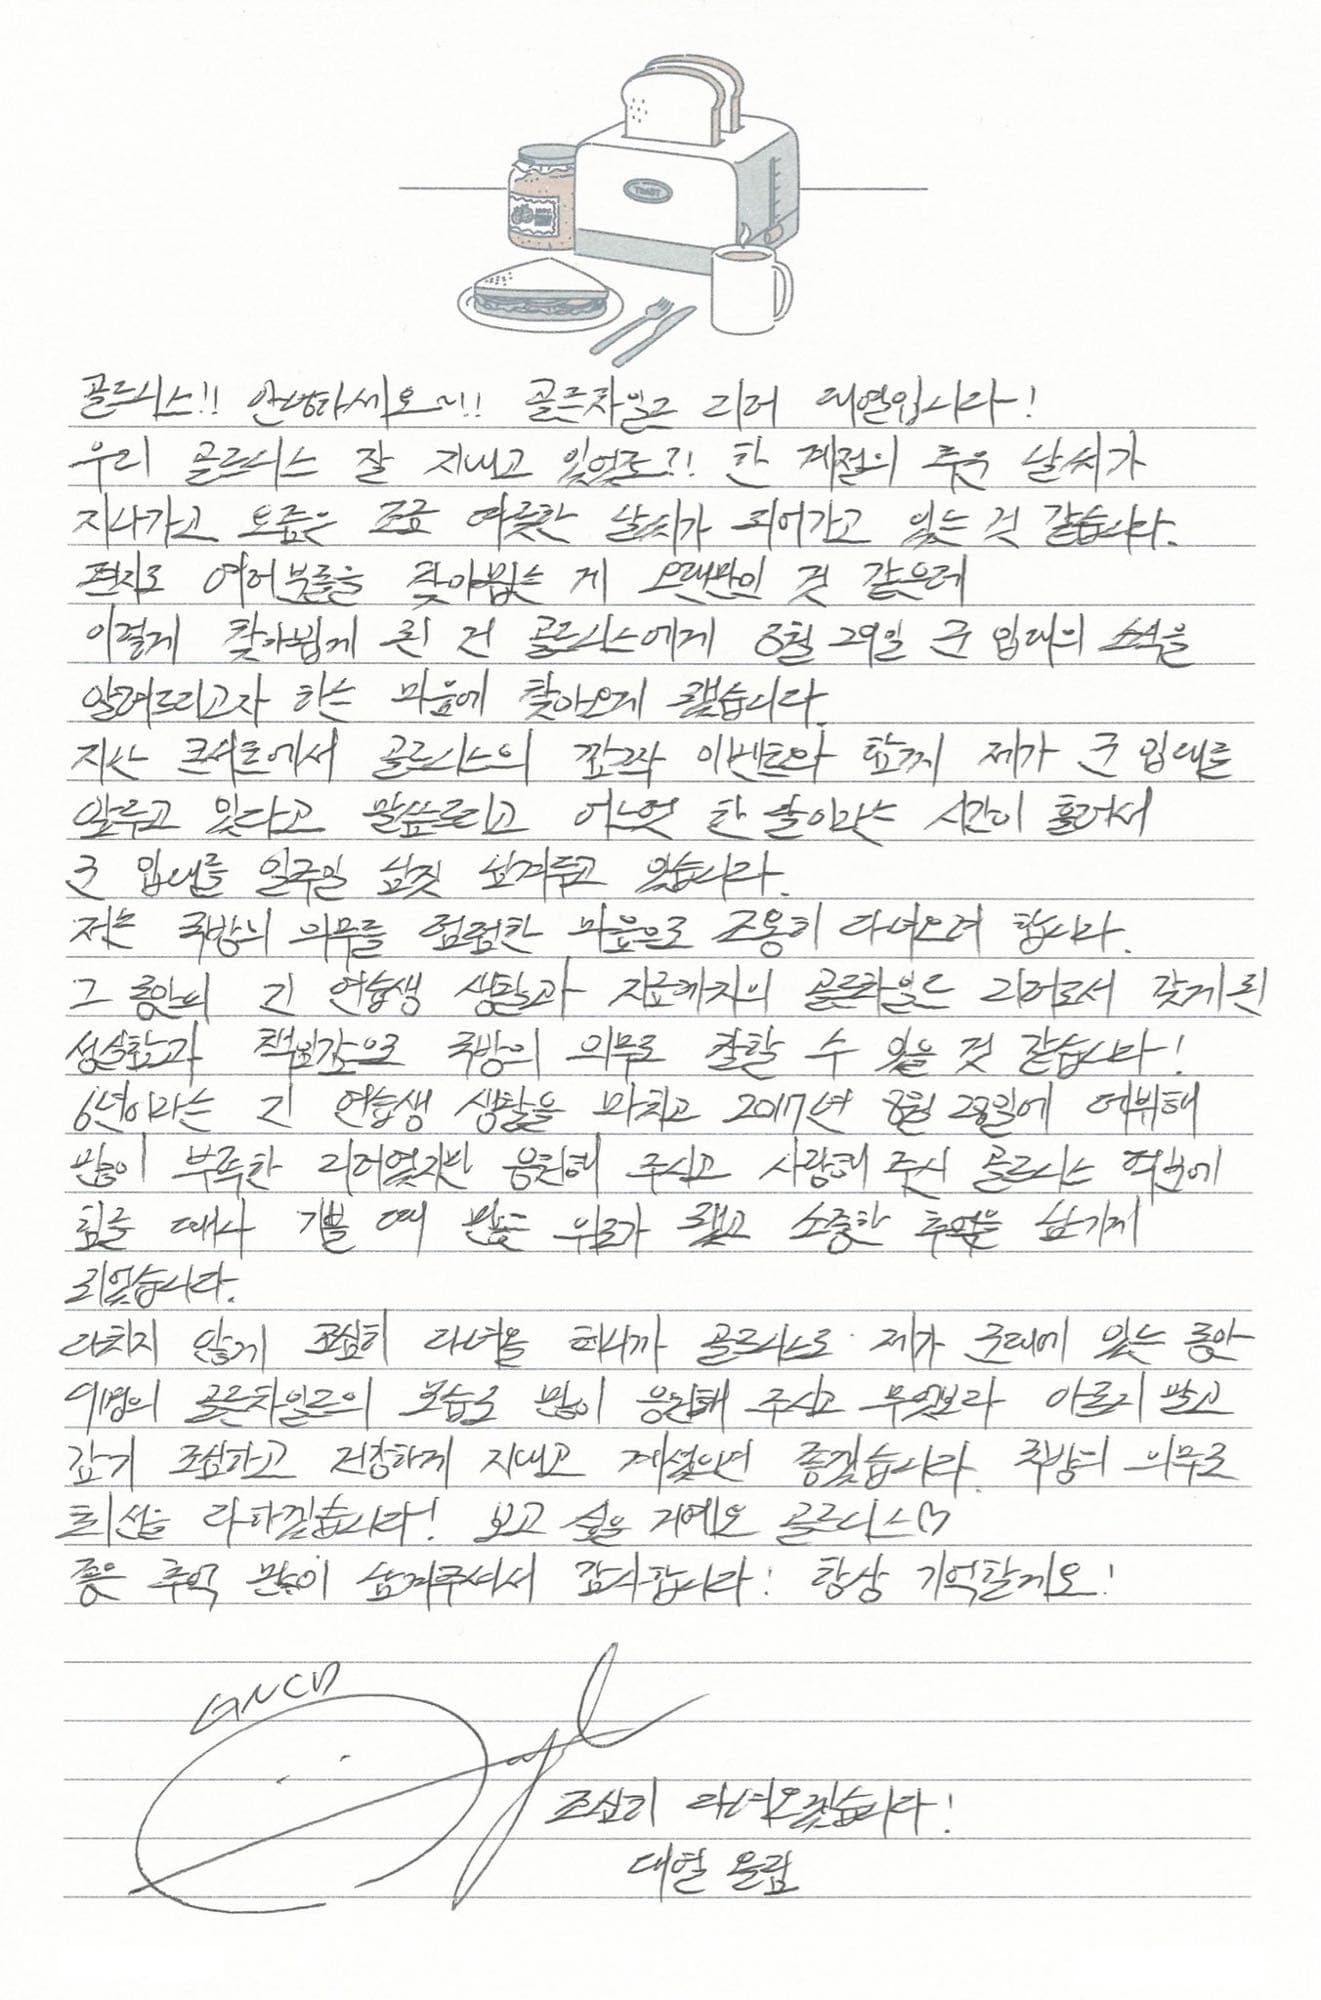 TOAST
골드니스!! 안녕하세요~!! 골든차일드 리더 대열입니다!
우리 골드니스 잘 지내고 있었죠?! 한 계절의 추운 날씨가
지나가고 요즘은 조금 따뜻한 날씨가 되어가고 있는 것 같습니다.
편지로 여러분들을 찾아뵙는 게 오랜만인 것 같은데
이렇게 찾아뵙게 된 건 골드니스에게 3월 29일 군 입대의 소식을
알려드리고자 하는 마음에 찾아오게 됐습니다.
지난 콘서트에서 골드니스의 깜짝 이벤트와 함께 제가 군 입대를
앞두고 있다고 말씀드리고 어느덧 한 달이라는 시간이 흘러서
군 입대를 일주일 남짓 남겨두고 있습니다.
저는 국방의 의무를 덤덤한 마음으로 조용히 다녀오려 합니다.
그 동안의 긴 연습생 생활과 지금까지의 골든차일드 리더로서 갖게 된
성실함과 책임감으로 국방의 의무도 잘할 수 있을 것 같습니다!
6년이라는 긴 연습생 생활을 마치고 2017년 8월 28일에 데뷔해
많이 부족한 리더였지만 응원해 주시고 사랑해 주신 골드니스 덕분에
힘들 때나 기쁠 때 많은 위로가 됐고 소중한 추억을 남기게
되었습니다.
다치지 않게 조심히 다녀올 테니까 골드니스도 제가 군대에 있는 동안
9명의 골든차일드의 모습도 많이 응원해 주시고 무엇보다 아프지 말고
감기 조심하고 건강하게 지내고 계셨으면 좋겠습니다. 국방의 의무도
최선을 다하겠습니다! 보고 싶을 거예요 골드니스♡
좋은 추억 많이 남겨주셔서 감사합니다! 항상 기억할게요!
GNCD
조심히 다녀오겠습니다!
대열 올림